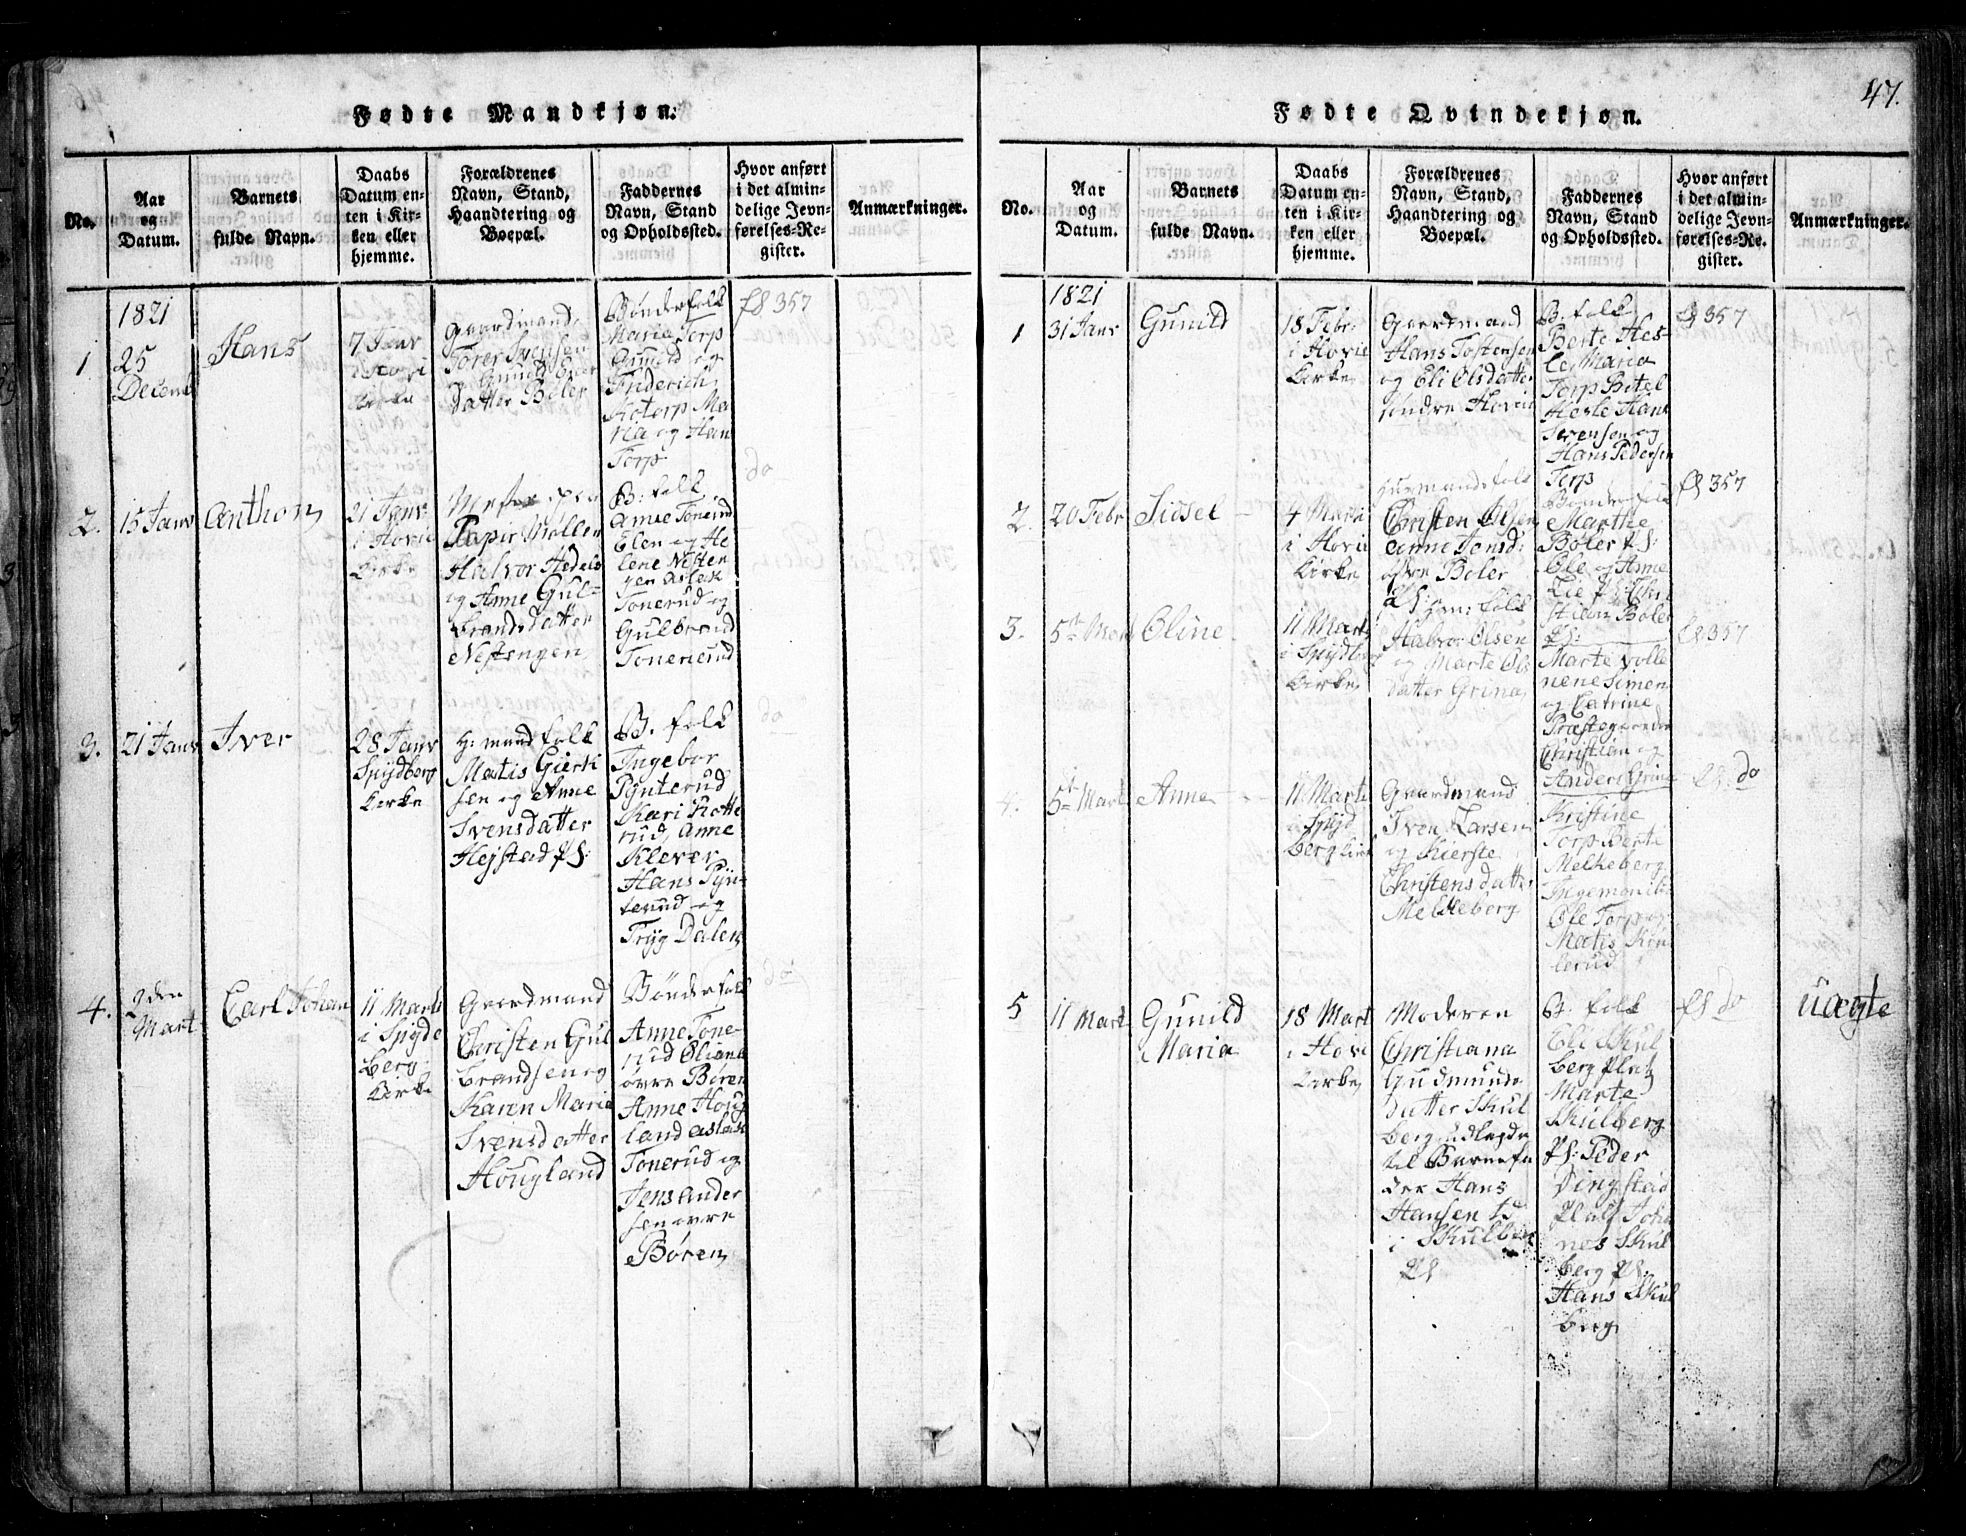 47.
Fødte Mandkjøn.
No.
Aar
og
Datum.
Barnets
fulde Navn.
Daabs
Datum en-
ten i Kir-
ken eller
hjemme.
Forældrenes
Navn, Stand,
Haandtering og
Boepæl.
Faddernes
Navn, Stand
og Opholdssted.
Hvor anført
i det almin-
delige Jevn-
førelses-Re-
gister.
Anmærkninger.
1
1821
25
Decemb
Hans
7 Janv
i Hovi
Kirke
Gaardmand
Torer Svensen
Gunild
datter Boler
Bønderfolk
Maria Torp
Gunild og
Friderich
Kotorp Ma
ria og Han
Torp
fol 357
2.
15 Janv
Anthon
21 Janv
i Hovie
Kirke
Papir Møller
Halvor Hedels
og Anne Gul-
brandsdatter
Nestengen
B: folk
Anne Tonerud
Elen og He
lene Nesten
gen Aslak
Tonerud og
Gulbrand
Tonerud
do
3.
21 Janv
Iver
28 Janv
Spydberg
Kirke
H: mand folk
Matis Gierk
sen og Anne
Svensdatter
Hejstad Pl:
B. folk
Ingebor
Pynterud
Kari Kotte
rud, Anne
Klever
Hans Pyn-
terud og
Tryg Dalen
do
4.
2den
Mart
Carl Johan
11 Marts
i Spyde
berg
Kirke
Gaardmand
Christen Gul
brandsen og
Karen Maria
Svensdatter
Hougland
Bønderfolk
Anne Tone-
rud Oliana
øvre Børen
Anne Houg
land Aslak
Tonerud og
Jens Ander
sen øvre
Børen
do
Fødte Qvindekjøn.
No.
Aar
og
Datum.
Barnets
fulde Navn.
Daabs
Datum en-
ten i Kir-
ken eller
hjemme.
Forældrenes
Navn, Stand,
Haandtering og
Boepæl.
Faddernes
Navn, Stand
og Opholdssted.
Hvor anført
i det almin-
delige Jevn-
førelses-Re-
gister.
Anmærkninger.
1
1821
31 Janv
Gunild
18 Febr:
i Hovie
Kirke
Gaardmand
Hans Tostensen
og Eli Olsdatter
søndre Hovie
B: folk
Berte Hes-
le, Maria
Torp Botel
Hesle Hans
Sørensen og
Hans Pedersen
Torp
fol 357
2.
20 Febr
Sidsel
4 Marti
i Hovie
Kirke
Huusmandsfolk
Christen Olsen
Anne Jensd:
øvre Boler
Pl:
Bønderfolk
Marthe
Boler Pl:
Ole og Anne
Lie Pl:
Boler
Pl:
fol 357
3.
5te Mart
Oline
11 Marts
i Spydberg
Kirke
Hm: folk
Halvor Olsen
og Marte Ols
datter Grina
Marte Volle
nene Simen
og Catrine
Præstegaarden
Christian og
Anders Grina
fol 357
4.
5te Mart
Anne
11 Marts
i Spyd
berg Kirk
Gaardmand
Sven Larsen
og Kierste
Christensdatter
Melleberg
Kristine
Torp Berte
Melkeberg
Ole Torp og
Matis
fol. do
5
11 Mart
Gunild
Maria
18 Mart
i Hovi
Kirke
Moderen
Christiana
Gudmunds
datter Skul
berg udlagde
til Barnefa
der Hans
Hansen
i Skulberg
Pl
B. folk
Eli Skul
berg Plat
Marte
Skulberg
Pl: Peder
Dingstad
Plat Joha
nes Skul
berg Pl.
Hans Skul
berg
fol do
uægte